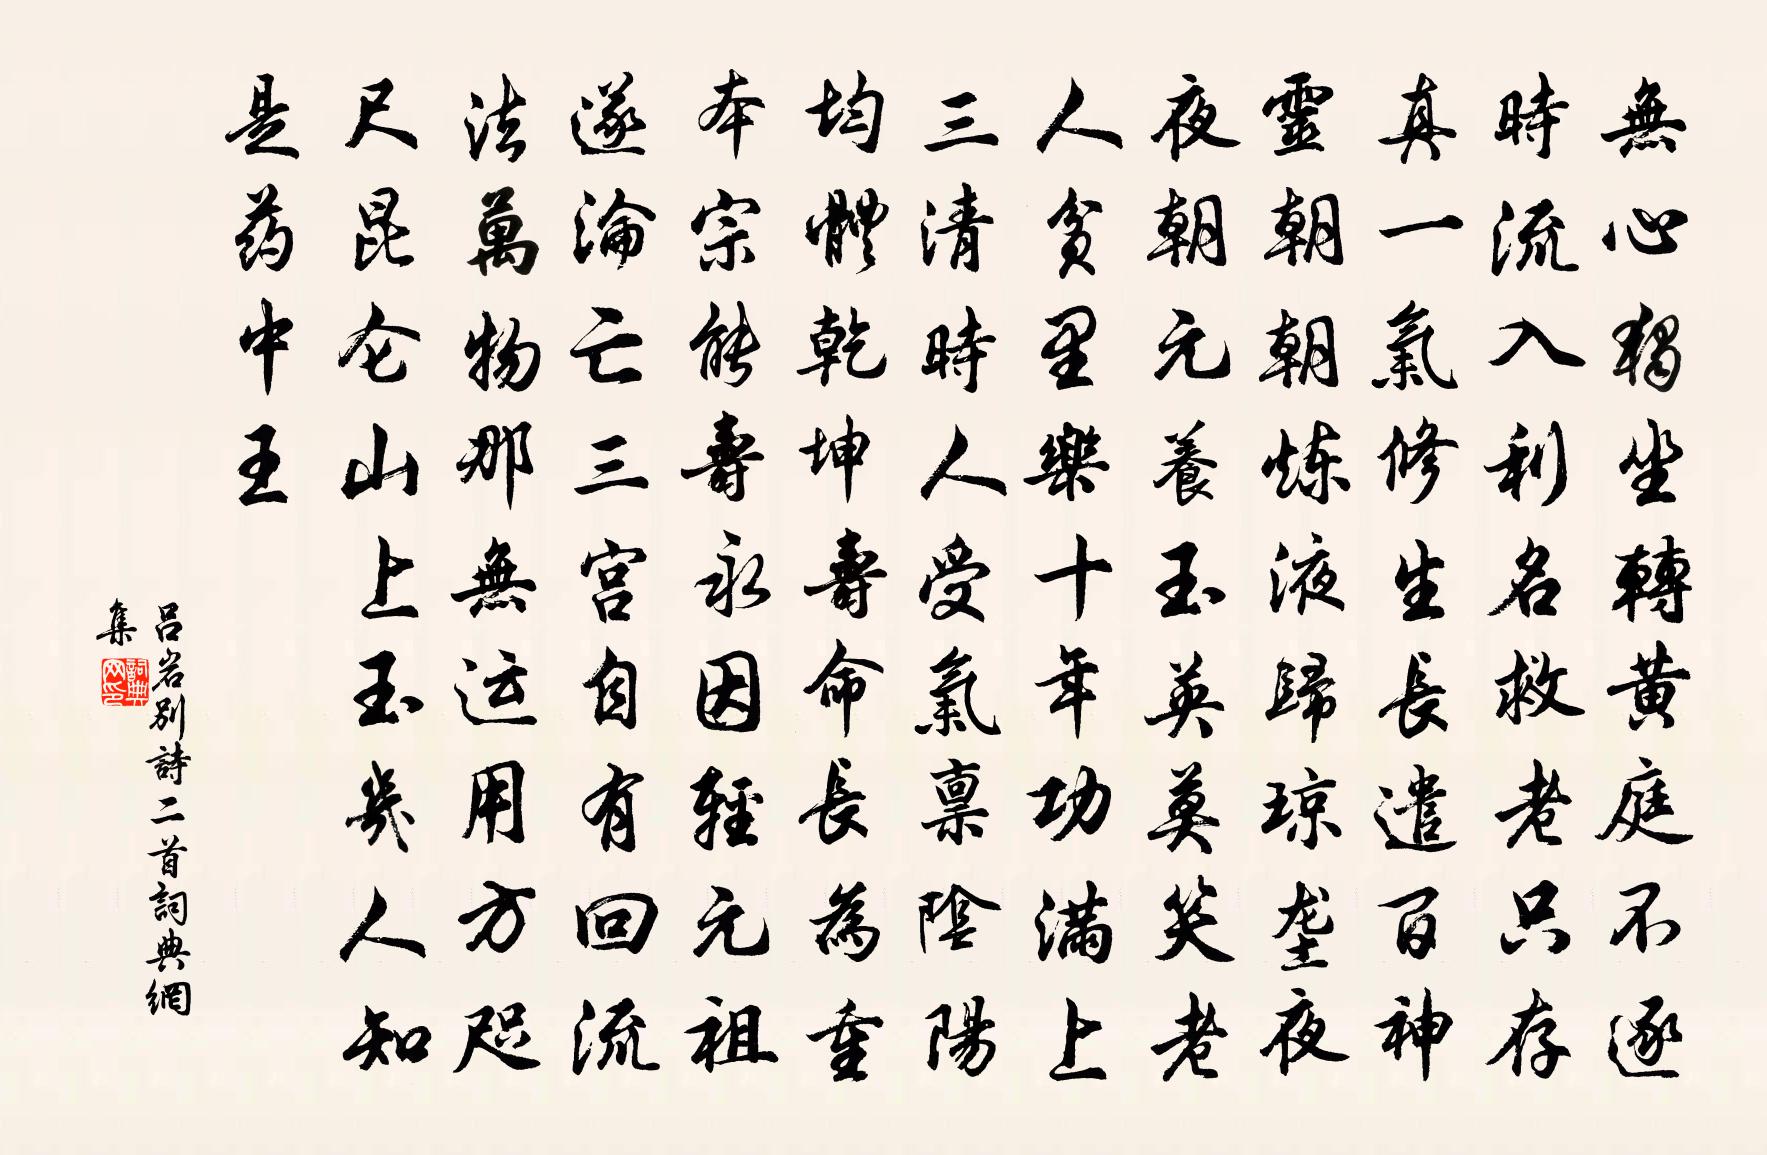 無心獨坐轉黃庭不逐
時流入利名救老只存
真一氣修生長遣百神
靈朝朝煉液歸琼垄夜
夜朝元養玉英莫笑老
人貧里樂十年功满上
三清時人受氣禀陰陽
均體乾坤壽命長為重
本宗能壽永因輕元祖
遂淪亡三宫自有回流
法萬物那無运用方咫
尺昆仑山上玉幾人知
是药中王
吕岩别詩二首詞典網
集
詞典网印